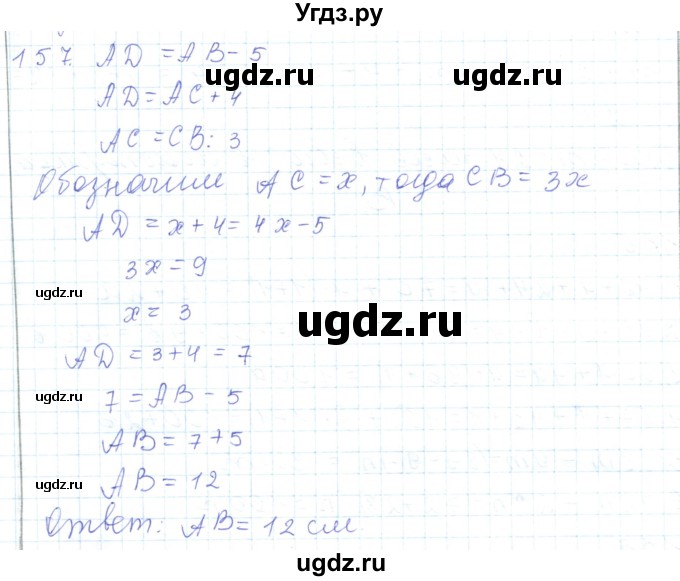 Угдз.ру
157. AD = AB - 5
ugdz.ru
ugdz.ru
AD = AC + 4
AC = CB : 3
Обозначим AC = x, тогда CB = 3x
AD = x + 4 = 4x - 5
3x = 9
ugdz.ru
ugdz.ru
x = 3
AD = 3 + 4 = 7
7 = AB - 5
ugdz.ru
ugdz.ru
AB = 7 + 5
AB = 12
ugdz.ru
Ответ: AB = 12 см
ugdz.ru
ugdz.ru